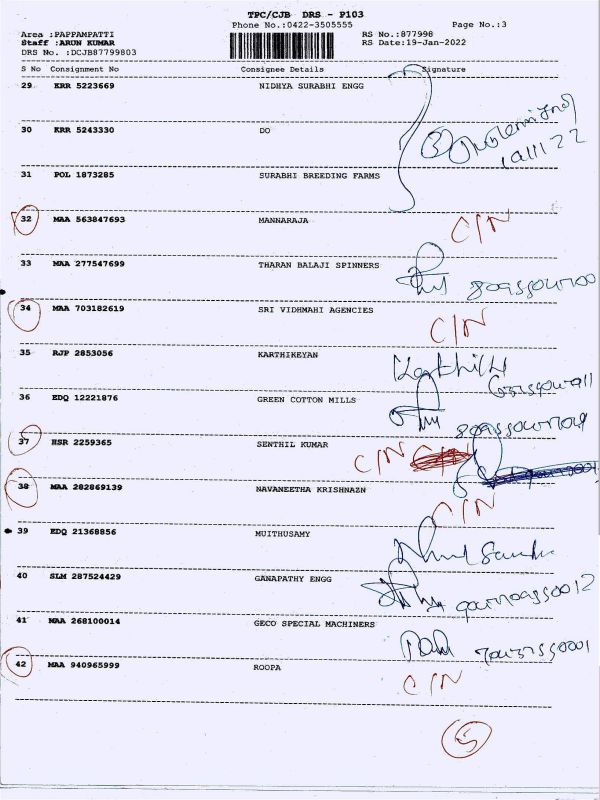 TPC/CJB DRS - P103
Phone No.:0422-3505555
Page No.:3
Area :PAPPAMPATTI
RS No.:877998
Staff :ARUN KUMAR
RS Date:19-Jan-2022
DRS No. :DCJB87799803
S No Consignment No Consignee Details Signature
29 KRR 5223669 NIDHYA SURABHI ENGG
30 KRR 5243330 DO
31 POL 1873285 SURABHI BREEDING FARMS
32 MAA 563847693 MANNARAJA C/N
33 MAA 277547699 THARAN BALAJI SPINNERS
34 MAA 703182619 SRI VIDHMAHI AGENCIES C/N
35 RJP 2853056 KARTHIKEYAN
36 EDQ 12221876 GREEN COTTON MILLS
37 HSR 2259365 SENTHIL KUMAR C/N
38 MAA 282869139 NAVANEETHA KRISHNAZN C/N
39 EDQ 21368856 MUITHUSAMY
40 SLM 287524429 GANAPATHY ENGG
41 MAA 268100014 GECO SPECIAL MACHINERS
42 MAA 940965999 ROOPA C/N
5